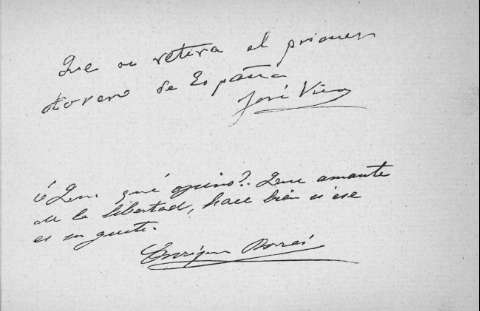 Que se retira el primer
torero de España
José
¿Que qué opino?. Que amante
de la libertad, hace bien si ese
es su gusto.
Enrique Borrás